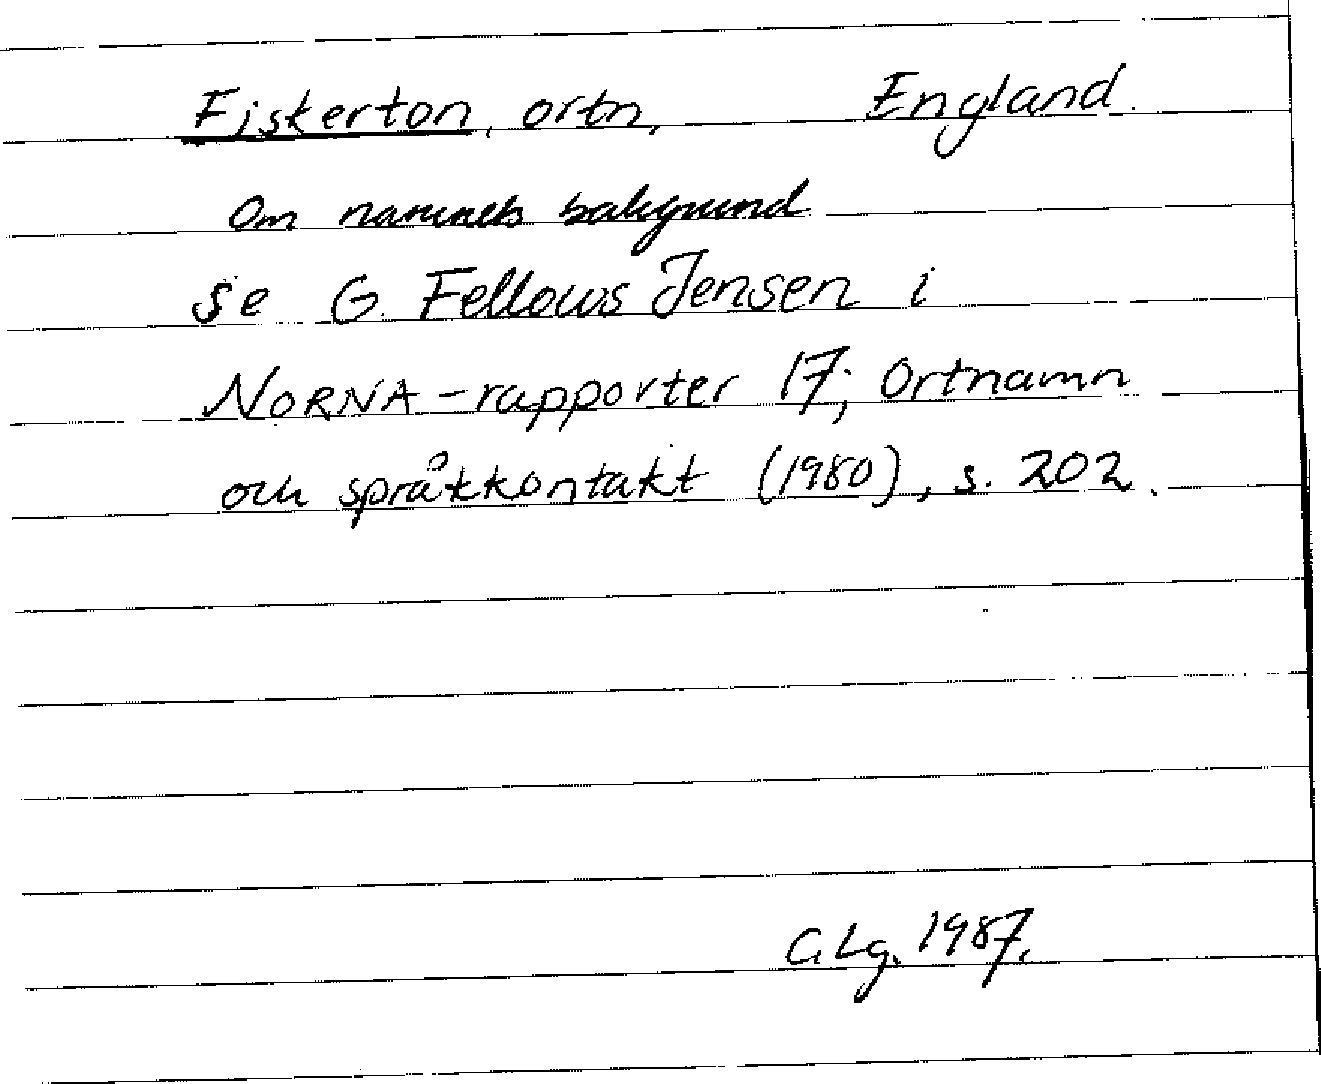 Fiskerton, ortn, England.
Om namnets bakgrund
se G. Fellows Jensen i
NORNA-rapporter 17; Ortnamn
och språkkontakt (1980), s. 202.
C. Lg. 1987.